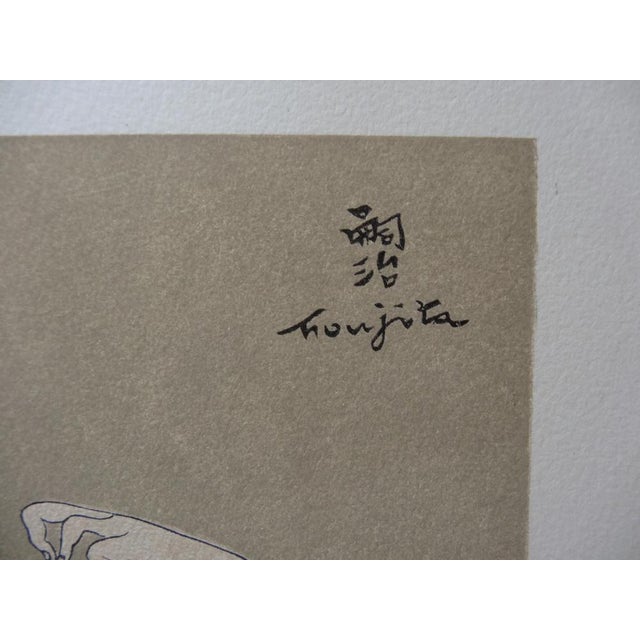 嗣治
Foujita